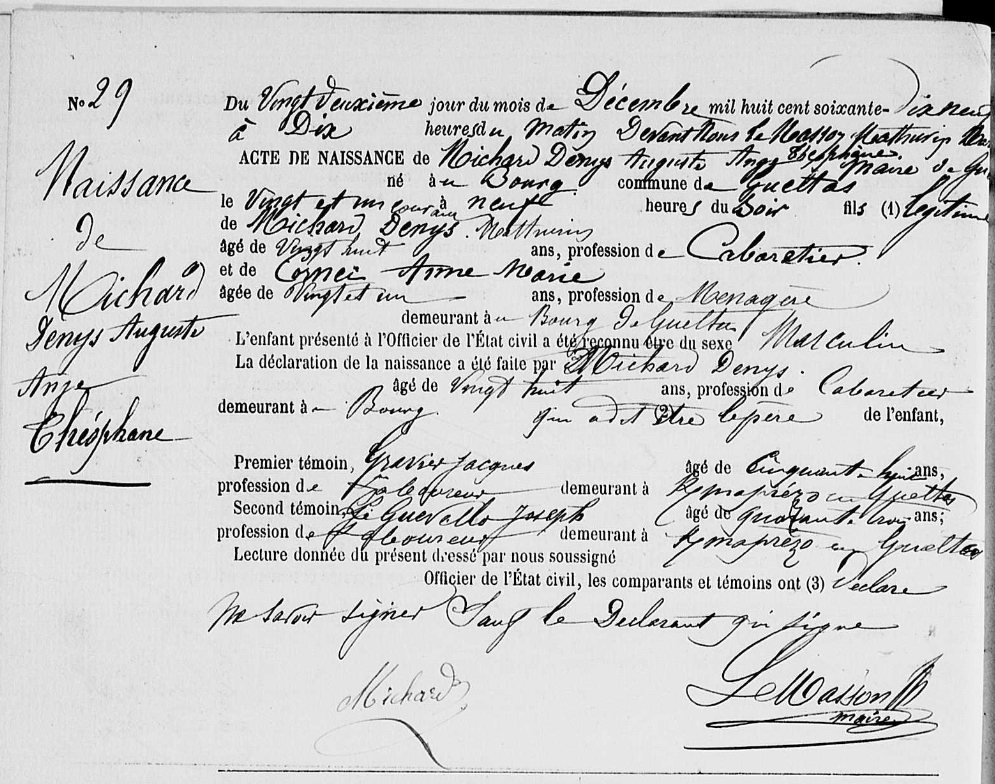 No 29
Naissance
de
Michard
Denys Auguste
Ange
Théophane
Du Vingt deuxième jour du mois de Décembre mil huit cent soixante-dix neuf
à Dix heures du Matin Devant Nous le Masson Mathurin
ACTE DE NAISSANCE de Michard Denys Auguste Ange Théophane Maire de
né à u Bourg commune de Gueltas
le Vingt et un courant à neuf heures du Soir fils (1) légitime
de Michard Denys Mathurin
âgé de Vingt huit ans, profession de Cabaretier
et de Anne Marie
âgée de Vingt et un ans, profession de Menagère
demeurant à u Bourg de Gueltas
L'enfant présenté à l'Officier de l'État civil a été reconnu être du sexe Masculin
La déclaration de la naissance a été faite par Michard Denys
âgé de Vingt huit ans, profession de Cabaretier
demeurant à u Bourg qui a dit (2) être le père de l'enfant,
Premier témoin, Gravier Jacques âgé de Cinquante huit ans,
profession de Laboureur demeurant à en Gueltas
Second témoin, Le Guevello Joseph âgé de quarante trois ans;
profession de Laboureur demeurant à en Gueltas
Lecture donnée du présent dressé par nous soussigné
Officier de l'État civil, les comparants et témoins ont (3) Déclaré
ne savoir signer Sauf le Déclarant qui signe
Michard
Le Masson M
maire